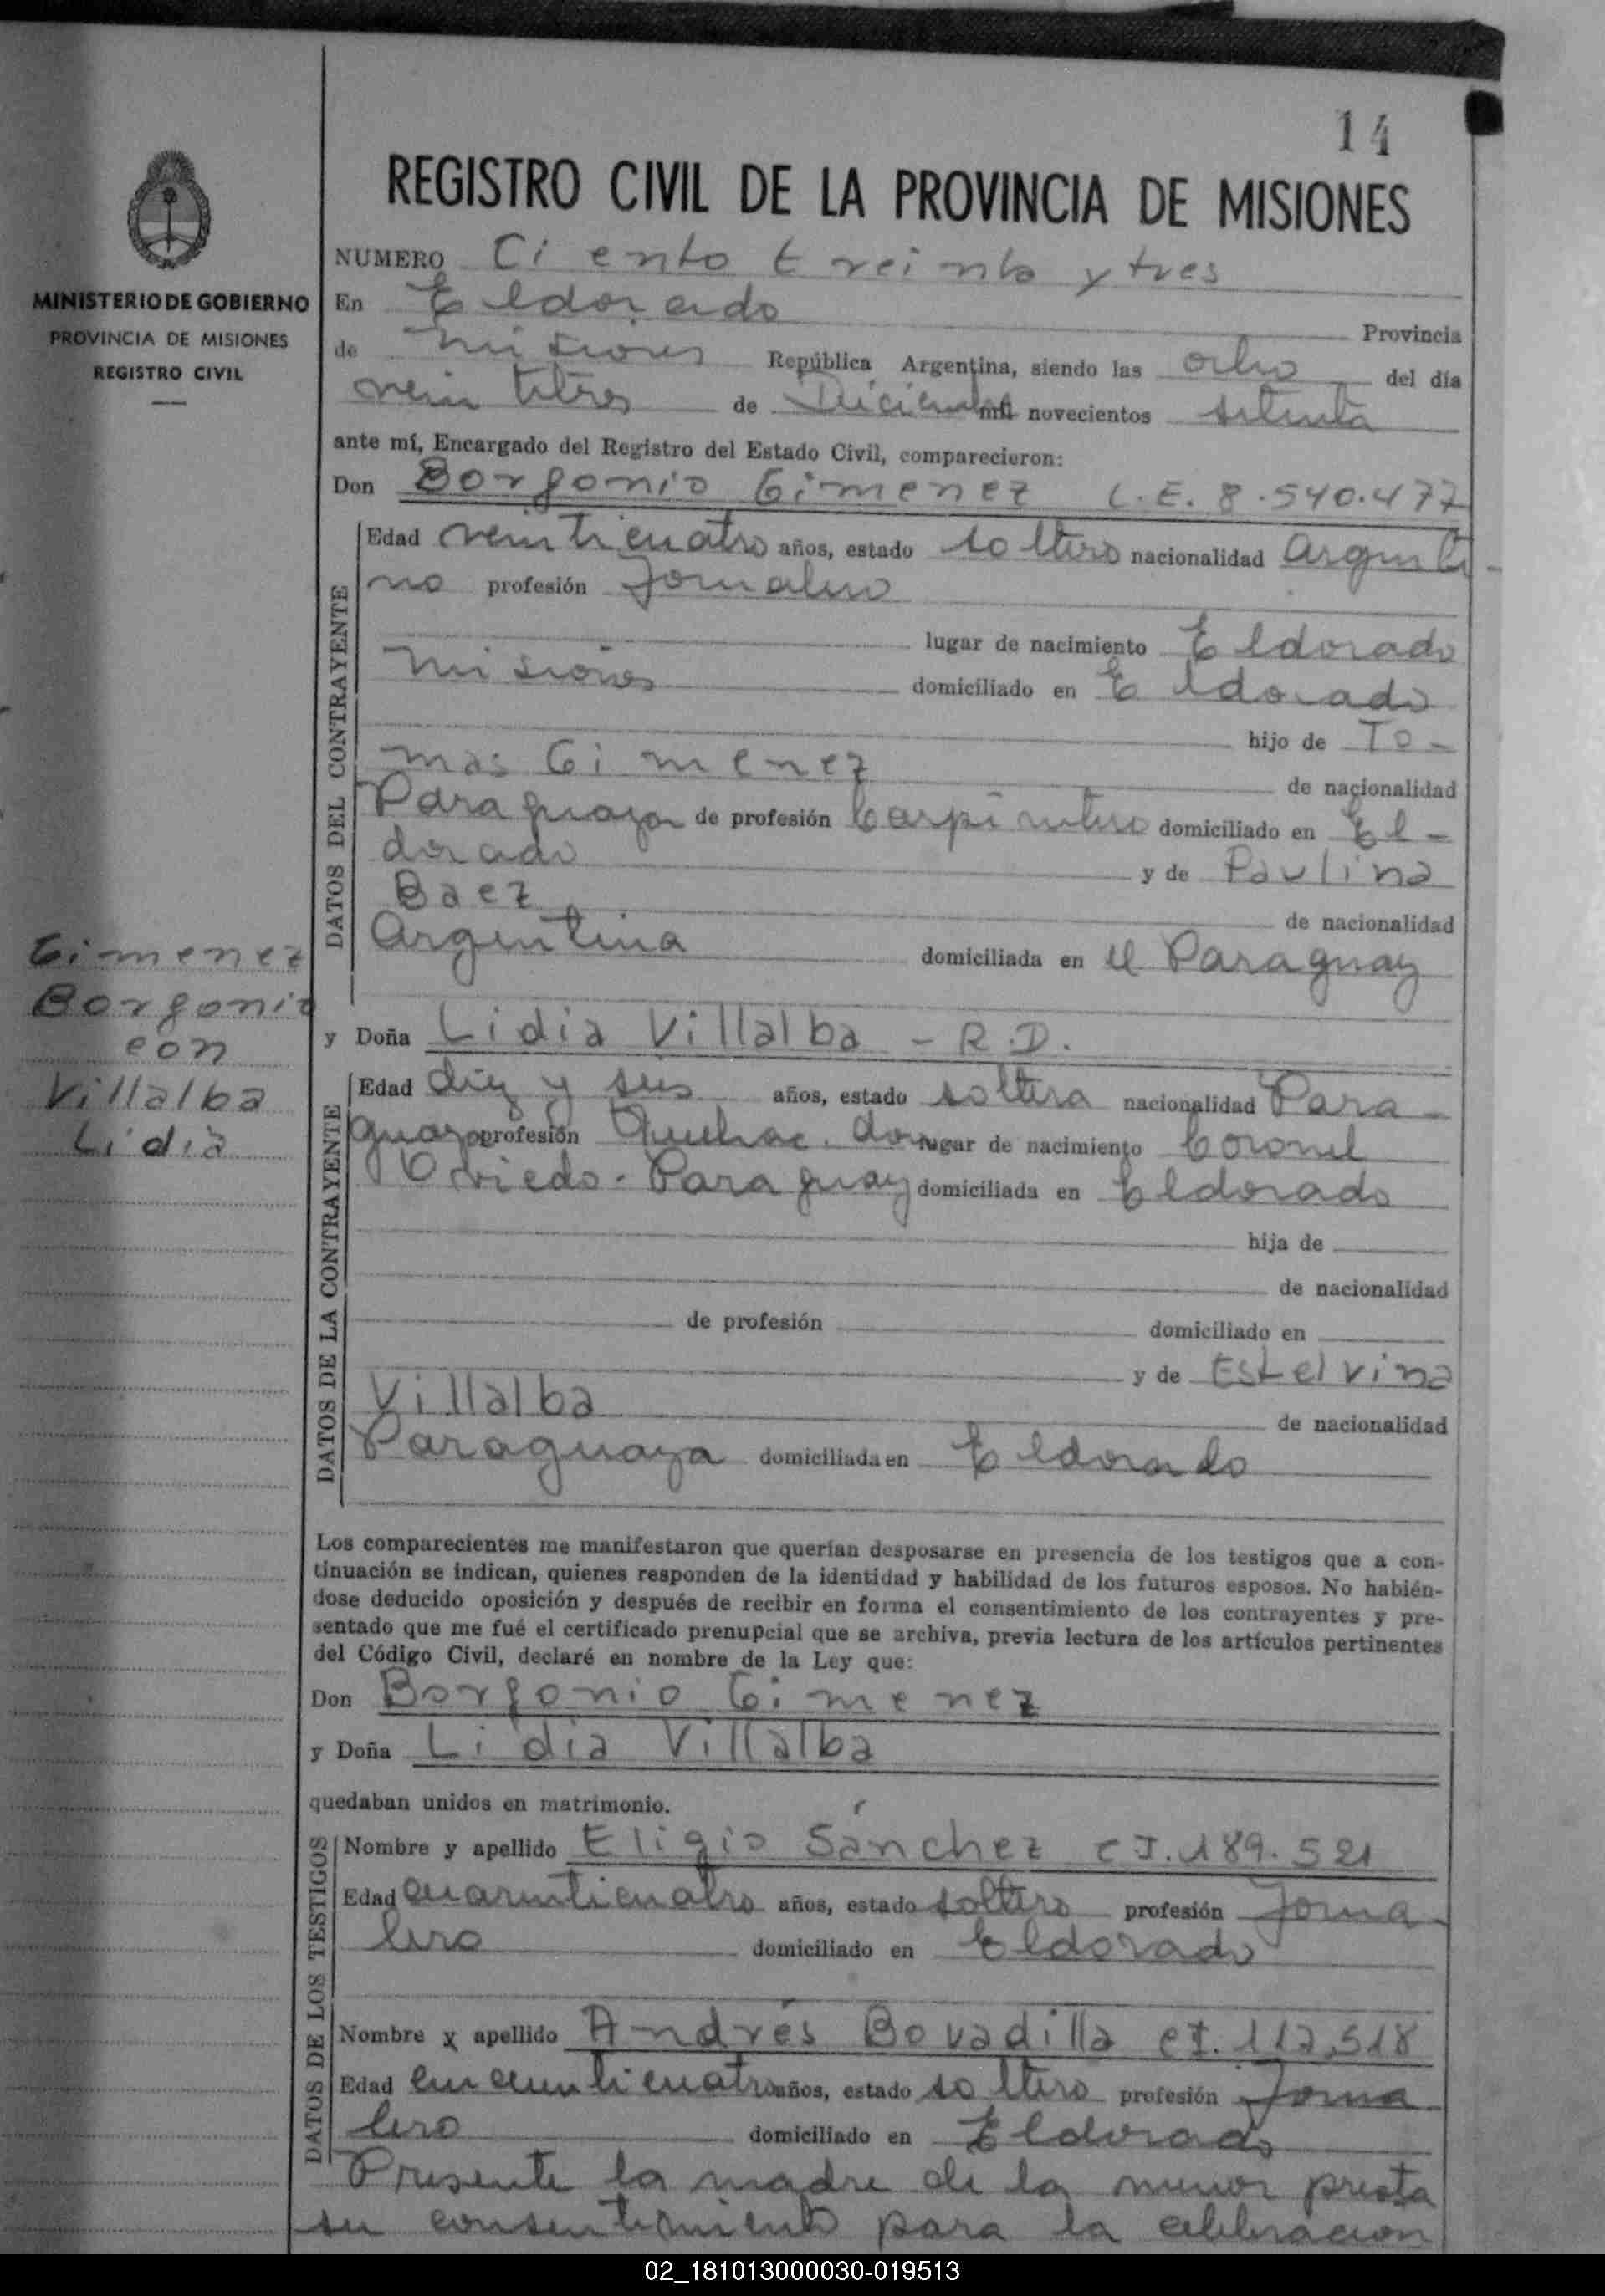 14
REGISTRO CIVIL DE LA PROVINCIA DE MISIONES
MINISTERIO DE GOBIERNO
PROVINCIA DE MISIONES
REGISTRO CIVIL
NUMERO Ciento treinta y tres
En Eldorado Provincia
de Misiones República Argentina, siendo las ocho del día
veintitres de Diciembre mil novecientos setenta
ante mí, Encargado del Registro del Estado Civil, comparecieron:
Don Borgonio Gimenez L.E. 8.540.477
DATOS DEL CONTRAYENTE
Edad veinticuatro años, estado soltero nacionalidad Argenti-
no profesión Jornalero
lugar de nacimiento Eldorado
Misiones domiciliado en Eldorado
hijo de To-
mas Gimenez de nacionalidad
Paraguaya de profesión Carpintero domiciliado en El-
dorado y de Paulina
Baez de nacionalidad
Argentina domiciliada en el Paraguay
Gimenez
Borgonio
con
Villalba
Lidia
y Doña Lidia Villalba - R.D.
DATOS DE LA CONTRAYENTE
Edad diez y seis años, estado soltera nacionalidad Para-
guaya profesión Quehac. dom lugar de nacimiento Coronel
Oviedo - Paraguay domiciliada en Eldorado
hija de
de nacionalidad
de profesión domiciliado en
y de Estelvina
Villalba de nacionalidad
Paraguaya domiciliada en Eldorado
Los comparecientes me manifestaron que querían desposarse en presencia de los testigos que a con-
tinuación se indican, quienes responden de la identidad y habilidad de los futuros esposos. No habién-
dose deducido oposición y después de recibir en forma el consentimiento de los contrayentes y pre-
sentado que me fué el certificado prenupcial que se archiva, previa lectura de los artículos pertinentes
del Código Civil, declaré en nombre de la Ley que:
Don Borgonio Gimenez
y Doña Lidia Villalba
quedaban unidos en matrimonio.
DATOS DE LOS TESTIGOS
Nombre y apellido Eligio Sánchez CI. 189.521
Edad cuarenticuatro años, estado soltero profesión Jorna-
lero domiciliado en Eldorado
Nombre y apellido Andrés Bovadilla CI. 112.518
Edad cincuenticuatro años, estado soltero profesión Jorna
lero domiciliado en Eldorado
Presente la madre de la menor presta
su consentimiento para la celebracion
02_181013000030-019513